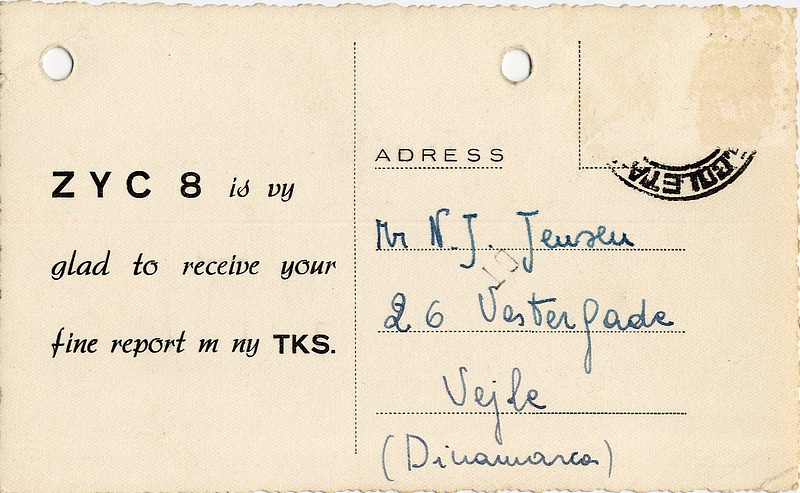 ZYC 8 is vy
glad to receive your
fine report m ny TKS.
ADRESS
Mr N.J. Jensen
26 Vestergade
Vejle
(Dinamarca)
COLETA